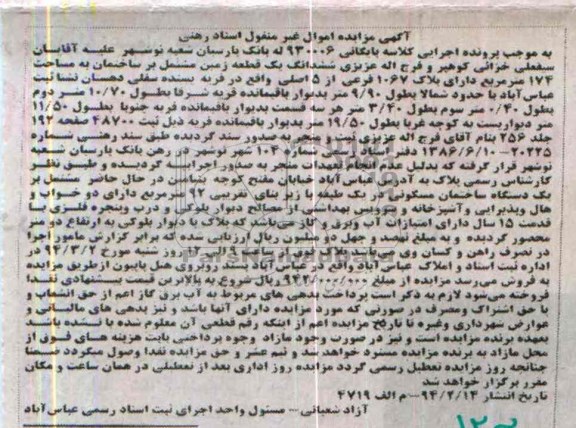 آگهی مزایده اموال غیر منقول اسناد رهنی
به موجب پرونده اجرایی کلاسه بایگانی ۹۳۰۰۰۶ له بانک پارسیان شعبه نوشهر علیه آقایان
سیفعلی خزائی کوهپر و فرج اله عزیزی ششدانگ یک قطعه زمین مشتمل بر ساختمان به مساحت
۱۷۴ مترمربع دارای پلاک ۱۰۶۷ فرعی از ۵ اصلی واقع در قریه پسنده سفلی دهستان نشتا ثبت
عباس‌آباد با حدود شمالا بطول ۹/۹۰ متر پدیوار باقیمانده قریه شرقا بطول ۱۰/۷۰ متر دوم
بطول ۰/۴۰ متر سوم بطول ۳/۴۰ متر هر سه قسمت پدیوار باقیمانده قریه جنوبا بطول ۱۱/۵۰
متر دیواریست به کوچه غربا بطول ۱۹/۵۰ متر پدیوار باقیمانده قریه ذیل ثبت ۴۸۷۰۰ صفحه ۱۹۲
جلد ۲۵۶ بنام آقای فرج اله عزیزی ثبت و منجر به صدور سند گردیده طبق سند رهنی شماره
۲۰۲۲۵-۱۳۸۶/۶/۱۰ دفترخانه اسناد رسمی شماره ۱۰۴ شهر نوشهر در رهن بانک پارسیان شعبه
نوشهر قرار گرفته که بدلیل عدم انجام تعهدات منجر به صدور اجرائیه گردیده و طبق نظر
کارشناس رسمی پلاک به آدرس عباس آباد خیابان مفتح کوچه بنیامین در حال حاضر مشتمل بر
یک دستگاه ساختمان مسکونی در یک طبقه با زیر بنای تقریبی ۹۲ مترمربع دارای دو خواب و
هال وپذیرایی وآشپزخانه و سرویس بهداشتی از مصالح دیوار بلوکی و درب وپنجره فلزی با
قدمت ۱۵ سال دارای امتیازات آب وبرق و گاز می‌باشد که پلاک با دیوار بلوکی به ارتفاع دو متر
محصور گردیده و به مبلغ نهصد و چهل دو میلیون ریال ارزیابی شده که برابر گزارش مامور اجرا
در تصرف راهن و کسان وی میباشد پلاک فوق از ساعت ۹ الی ۱۲ روز شنبه مورخ ۹۴/۳/۲ در
اداره ثبت اسناد و املاک عباس آباد واقع در عباس‌آباد پسند روبروی هتل پاپیون ازطریق مزایده
به فروش می‌رسد مزایده از مبلغ ۹۴۲/۰۰۰/۰۰۰ ریال شروع به بالاترین قیمت پیشنهادی نقدا
فروخته می‌شود لازم به ذکر است پرداخت بدهی های مربوط به آب برق گاز اعم از حق انشعاب و
یا حق اشتراک ومصرف در صورتی که مورد مزایده دارای آنها باشد و نیز بدهی های مالیاتی و
عوارض شهرداری وغیره تا تاریخ مزایده اعم از اینکه رقم قطعی آن معلوم شده یا نشده باشد
بعهده برنده مزایده است و نیز در صورت وجود مازاد وجوه پرداختی بابت هزینه های فوق از
محل مازاد به برنده مزایده مسترد خواهد شد و نیم عشر و حق مزایده نقدا وصول میگردد ضمنا
چنانچه روز مزایده تعطیل رسمی گردد مزایده روز اداری بعد از تعطیلی در همان ساعت و مکان
مقرر برگزار خواهد شد
تاریخ انتشار ۹۴/۲/۱۴-م الف ۴۷۱۹
آزاد شعبانی - مسئول واحد اجرای ثبت اسناد رسمی عباس‌آباد